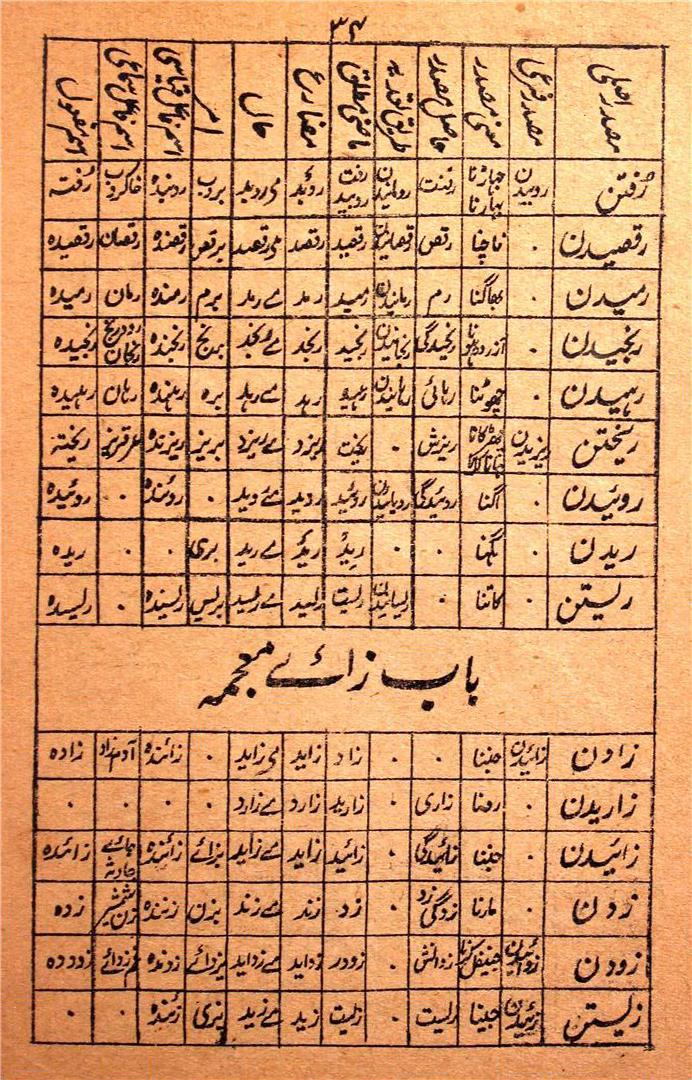 ۳۴
مصدر اصلی مصدر فرعی معنی مصدر حاصل مصدر طریق تعدیہ ماضی مطلق مضارع حال امر اسم فاعل قیاسی اسم فاعل سماعی اسم مفعول
رُفتن روبیدن جھاڑنا بہارنا رفت روبانیدن رفت روبید روبد می روبد بروب روبندہ خاکروب رُفتہ
رقصیدن ۰ ناچنا رقص رقصانیدن رقصید رقصد می رقصد برقص رقصندہ رقصان رقصیدہ
رمیدن ۰ بھاگنا رم رمانیدن رمید رمد مے رمد برم رمندہ رمان رمیدہ
رنجیدن ۰ آزردہ ہونا رنجیدگی رنجانیدن رنجید رنجد مے رنجد برنج رنجندہ زودرنج رنجان رنجیدہ
رہیدن ۰ چھوٹنا رہائی رہانیدن رہید رہد مے رہد برہ رہندہ رہان رہیدہ
ریختن ریزیدن ریزش ۰ ریخت ریزد مے ریزد بریز ریزندہ عرقریز ریختہ
روئیدن ۰ اگنا روئیدگی رویانیدن روئید روید مے روید ۰ روئندہ ۰ روئیدہ
ریدن ۰ ہگنا ۰ ۰ رید رید مے رید بری ۰ ۰ ریدہ
ریستن ۰ کاتنا ۰ ریسانیدن ریست ریسد مے ریسد بریس ریسندہ ۰ ریسیدہ
باب زائے معجمہ
زادن زائیدن جننا ۰ ۰ زاد زاید می زاید ۰ زائندہ آدمزاد زادہ
زاریدن ۰ رونا زاری ۰ زارید زارد مے زارد ۰ ۰ ۰ ۰
زائیدن ۰ جننا زائیدگی ۰ زائید زاید مے زاید بزائے زائندہ حادثہ زائدہ
زدن ۰ مارنا زدگی زد ۰ زد زند مے زند بزن زنندہ شمشیر زن زدہ
زدودن زدائیدن صیقل کرنا زدائش ۰ زدود زداید مے زداید بزدائے زدندہ غم زدائے زدودہ
زیستن زئیدن جینا زیست ۰ زیست زید مے زید بزی زئندہ ۰ ۰